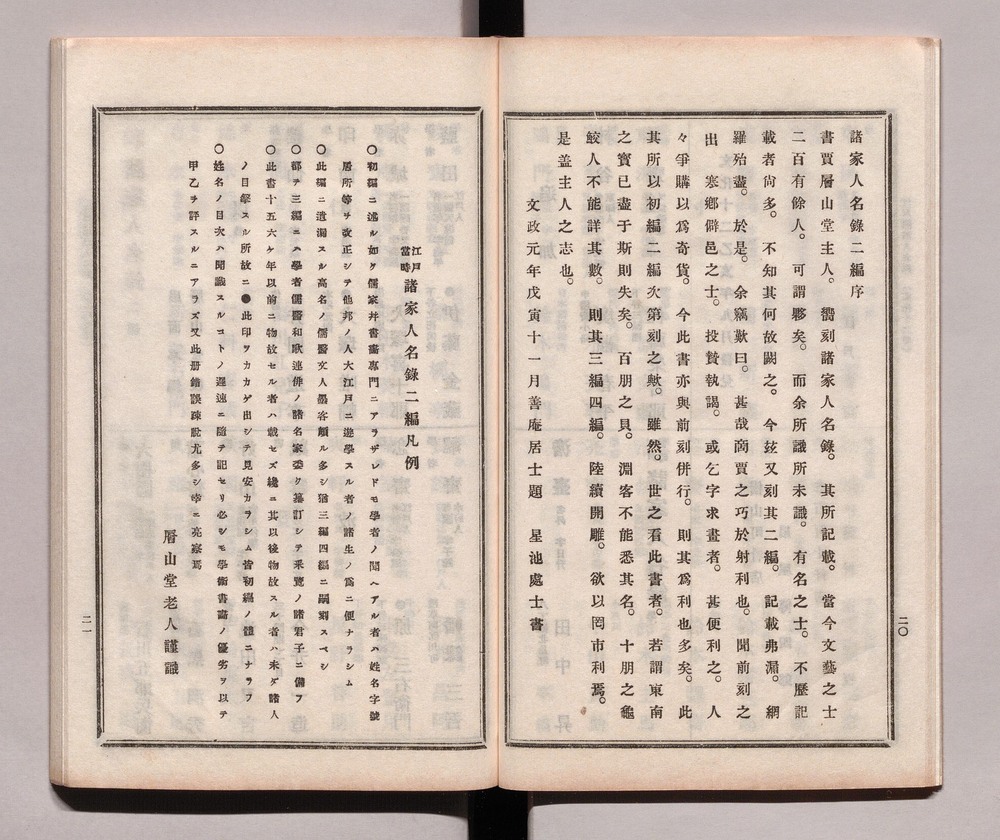 諸家人名錄二編序
書賈層山堂主人。鐫刻諸家人名錄。其所記載。當今文藝之士
二百有餘人。可謂夥矣。而余所識所未識。有名之士。不歷記
載者尙多。不知其何故闕之。今玆又刻其二編。記載弗漏。網
羅殆盡。於是。余竊歎曰。甚哉商賈之巧於射利也。聞前刻之
出、寒鄕僻邑之士。投贄執謁。或乞字求畫者。甚便利之。人
々爭購以爲奇貨。今此書亦與前刻併行。則其爲利也多矣。此
其所以初編二編次第刻之歟。雖然。世之看此書者。若謂東南
之寶已盡于斯則失矣。百朋之貝。淵客不能悉其名。十朋之龜
鮫人不能詳其數。則其三編四編。陸續開雕。欲以罔市利焉。
是盖主人之志也。
文政元年戊寅十一月善庵居士題 星池處士書
二〇
江戶當時諸家人名錄二編凡例
○初編ニ述ル如ク儒家幷書畵專門ニアラザレドモ學者ノ聞ヘアル者ハ姓名字號
居所等ヲ改正シテ他邦ノ人大江戶ニ遊學スル者ノ諸生ノ爲ニ便ナラシム
○此編ニ遺漏スル高名ノ儒醫文人墨客頗ル多シ猶三編四編ニ嗣刻スベシ
○都テ三編ニハ學者儒醫和歌連俳ノ諸名家委ク纂訂シテ釆覽ノ諸君子ニ備フ
○此書十五六ケ年以前ニ物故セル者ハ載セズ纔ニ其以後物故スル者ハ未ダ諸人
ノ目擊スル所故ニ●此印ヲカカゲ出シテ見安カラシム皆初編ノ體ニナラフ
○姓名ノ目次ハ聞識スルコトノ遲速ニ隨テ記セリ必シモ學術書畵ノ優劣ヲ以テ
甲乙ヲ評スルニアラズ又此册錯誤疎脫尤多シ幸ニ亮察焉
層山堂老人謹識
二一